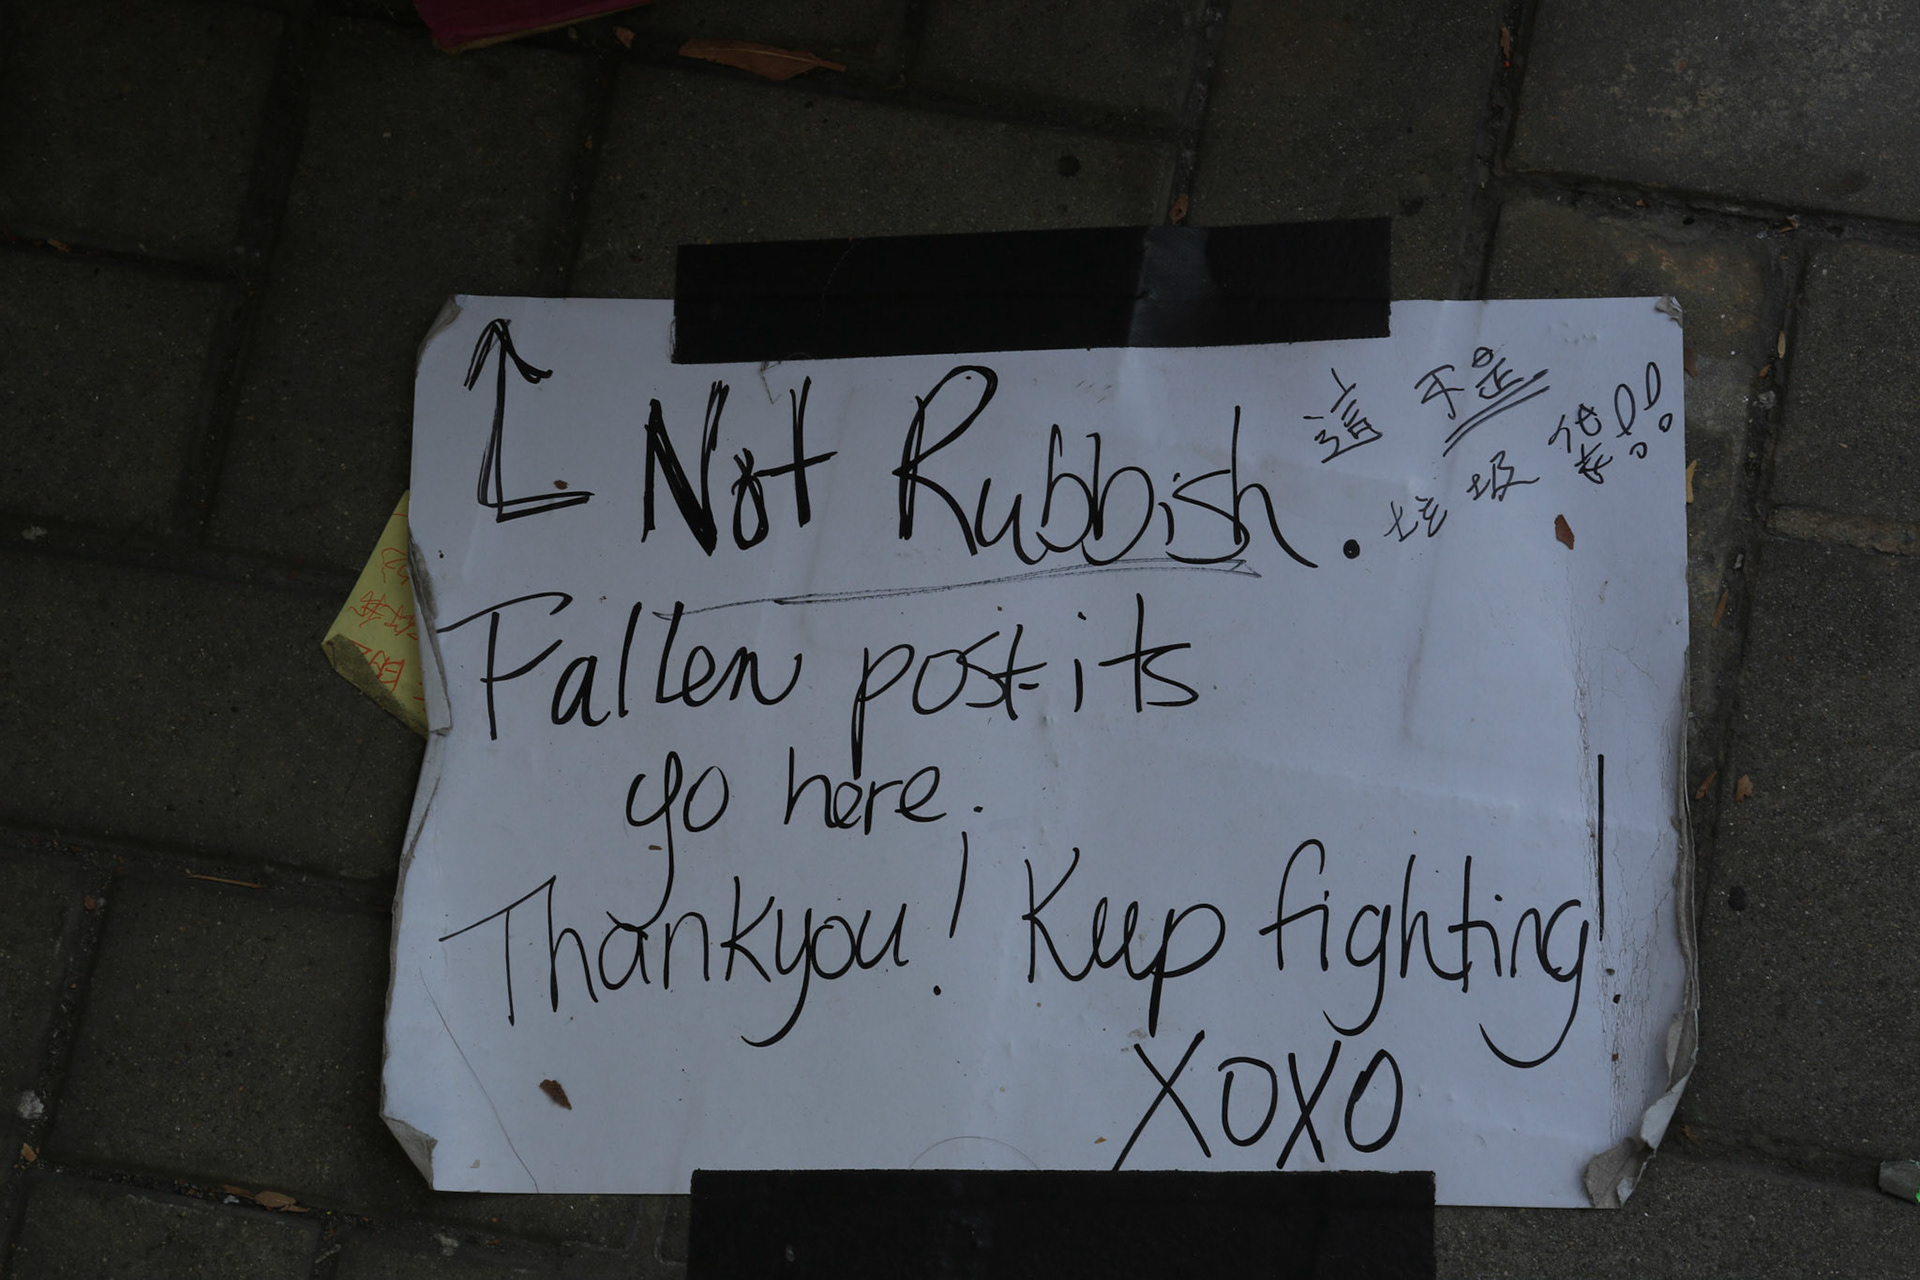 Not Rubbish.
這不是
垃圾袋!!
Fallen post-its
go here.
Thankyou! Keep fighting!
XOXO